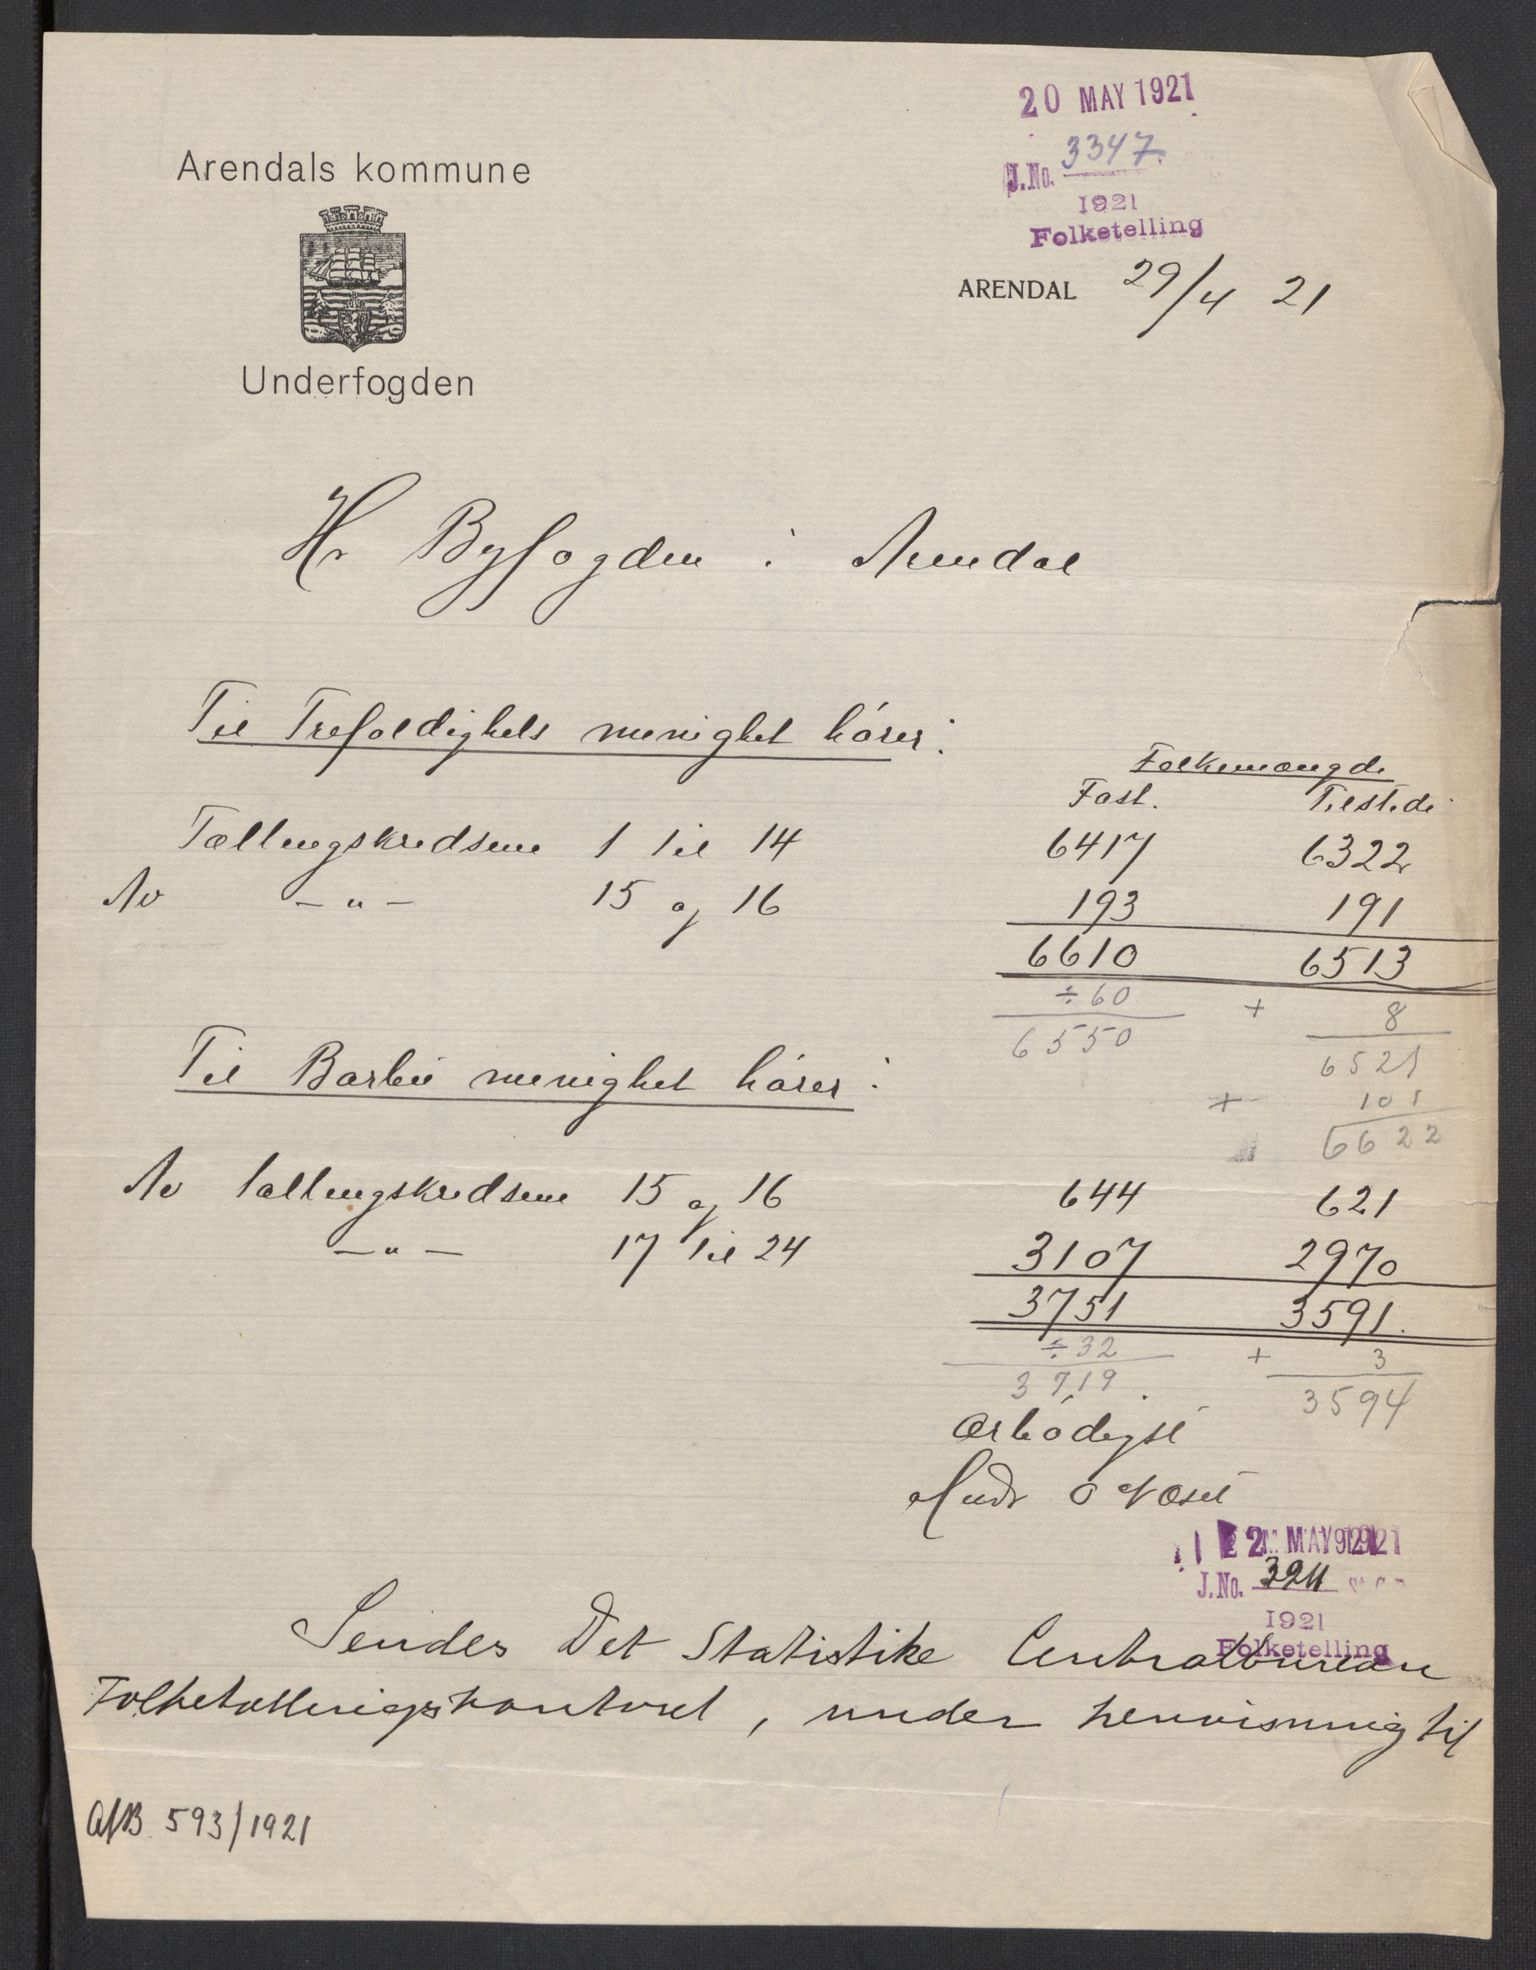 20 MAY 1921
J.No. 3347.
1921
Folketelling
Arendals kommune
Underfogden
ARENDAL 29/4 21
Hr Byfogden i Arendal
Til Trefoldigheds menighet hører:
Folkemængde
Fast. Tilstede
Tællingskredsene 1 til 14 6417 6322
Av — " — 15 og 16 193 191
6610 6513
÷ 60 + 8
6550 6521
+ 101
6622
Til Barbu menighet hører:
Av tællingskredsene 15 og 16 644 621
— " — 17 til 24 3107 2970
3751 3591.
÷ 32 + 3
3719. 3594
Ærbødigst
MAY 1921
J.No.
1921
Folketelling
Sendes Det Statistike Centralbureau
Folketællingskontoret, under henvisning til
593/1921